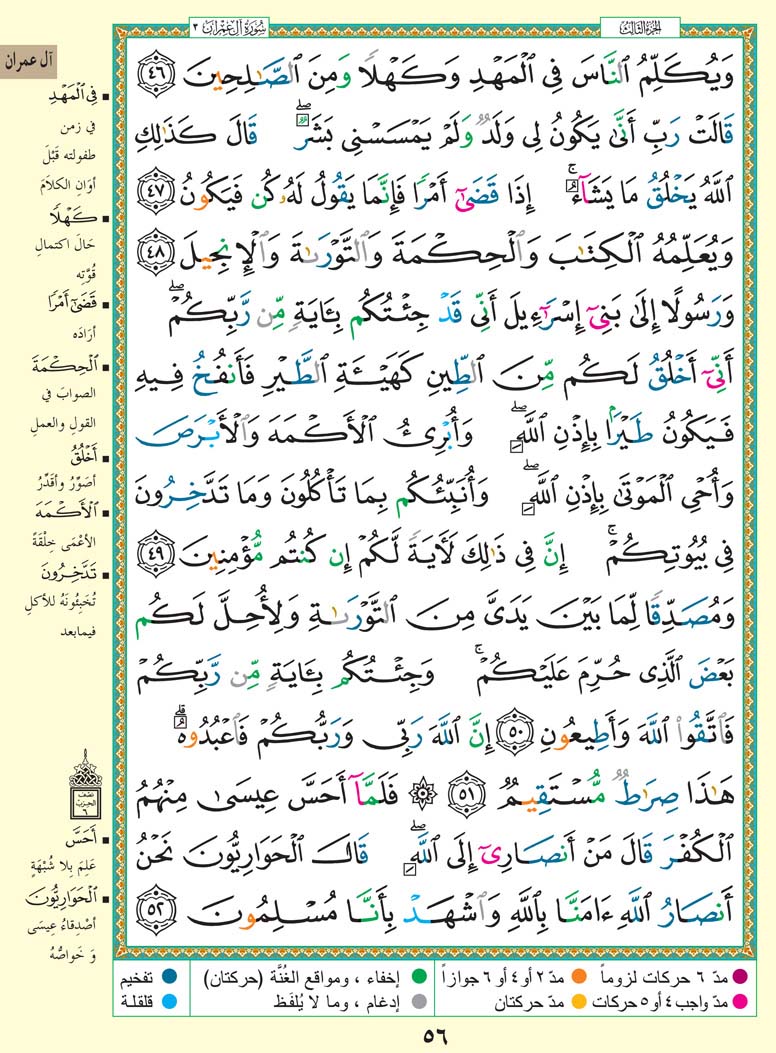 الجزء الثالث
سورة آل عمران ٣
وَيُكَلِّمُ ٱلنَّاسَ فِى ٱلْمَهْدِ وَكَهْلًا وَمِنَ ٱلصَّـٰلِحِينَ ٤٦
قَالَتْ رَبِّ أَنَّىٰ يَكُونُ لِى وَلَدٌ وَلَمْ يَمْسَسْنِى بَشَرٌ ۖ قَالَ كَذَٰلِكِ
ٱللَّهُ يَخْلُقُ مَا يَشَآءُ ۚ إِذَا قَضَىٰٓ أَمْرًا فَإِنَّمَا يَقُولُ لَهُۥ كُن فَيَكُونُ ٤٧
وَيُعَلِّمُهُ ٱلْكِتَـٰبَ وَٱلْحِكْمَةَ وَٱلتَّوْرَىٰةَ وَٱلْإِنجِيلَ ٤٨
وَرَسُولًا إِلَىٰ بَنِىٓ إِسْرَٰٓءِيلَ أَنِّى قَدْ جِئْتُكُم بِـَٔايَةٍ مِّن رَّبِّكُمْ ۖ
أَنِّىٓ أَخْلُقُ لَكُم مِّنَ ٱلطِّينِ كَهَيْـَٔةِ ٱلطَّيْرِ فَأَنفُخُ فِيهِ
فَيَكُونُ طَيْرًۢا بِإِذْنِ ٱللَّهِ ۖ وَأُبْرِئُ ٱلْأَكْمَهَ وَٱلْأَبْرَصَ
وَأُحْىِ ٱلْمَوْتَىٰ بِإِذْنِ ٱللَّهِ ۖ وَأُنَبِّئُكُم بِمَا تَأْكُلُونَ وَمَا تَدَّخِرُونَ
فِى بُيُوتِكُمْ ۚ إِنَّ فِى ذَٰلِكَ لَـَٔايَةً لَّكُمْ إِن كُنتُم مُّؤْمِنِينَ ٤٩
وَمُصَدِّقًا لِّمَا بَيْنَ يَدَىَّ مِنَ ٱلتَّوْرَىٰةِ وَلِأُحِلَّ لَكُم
بَعْضَ ٱلَّذِى حُرِّمَ عَلَيْكُمْ ۚ وَجِئْتُكُم بِـَٔايَةٍ مِّن رَّبِّكُمْ
فَٱتَّقُوا۟ ٱللَّهَ وَأَطِيعُونِ ٥٠ إِنَّ ٱللَّهَ رَبِّى وَرَبُّكُمْ فَٱعْبُدُوهُ ۗ
هَـٰذَا صِرَٰطٌ مُّسْتَقِيمٌ ٥١ ۞ فَلَمَّآ أَحَسَّ عِيسَىٰ مِنْهُمُ
ٱلْكُفْرَ قَالَ مَنْ أَنصَارِىٓ إِلَى ٱللَّهِ ۖ قَالَ ٱلْحَوَارِيُّونَ نَحْنُ
أَنصَارُ ٱللَّهِ ءَامَنَّا بِٱللَّهِ وَٱشْهَدْ بِأَنَّا مُسْلِمُونَ ٥٢
آل عمران
فِي الْمَهْدِ
في زمن
طفولته قَبْلَ
أوَانِ الكلامِ
كَهْلًا
حَالَ اكتمالِ
قُوَّتِه
قَضَىٰ أَمْرًا
أرَادَه
الْحِكْمَةَ
الصوابَ في
القولِ والعملِ
أَخْلُقُ
أصَوِّرُ وأقَدِّرُ
الْأَكْمَهَ
الأعْمَى خِلْقَةً
تَدَّخِرُونَ
تُخَبِئُونَهُ للأكلِ
فيمابعد
نصف
الحزب
٦
أَحَسَّ
عَلِمَ بِلا شُبْهَةٍ
الْحَوَارِيُّونَ
أصْدِقاءُ عِيسَى
وَ خَواصُّهُ
مدّ ٦ حركات لزوماً
مدّ ٢ أو ٤ أو ٦ جوازاً
إخفاء ، ومواقع الغُنَّة (حركتان)
تفخيم
مدّ واجب ٤ أو ٥ حركات
مدّ حركتان
إدغام ، وما لا يُلفَظ
قلقلة
٥٦